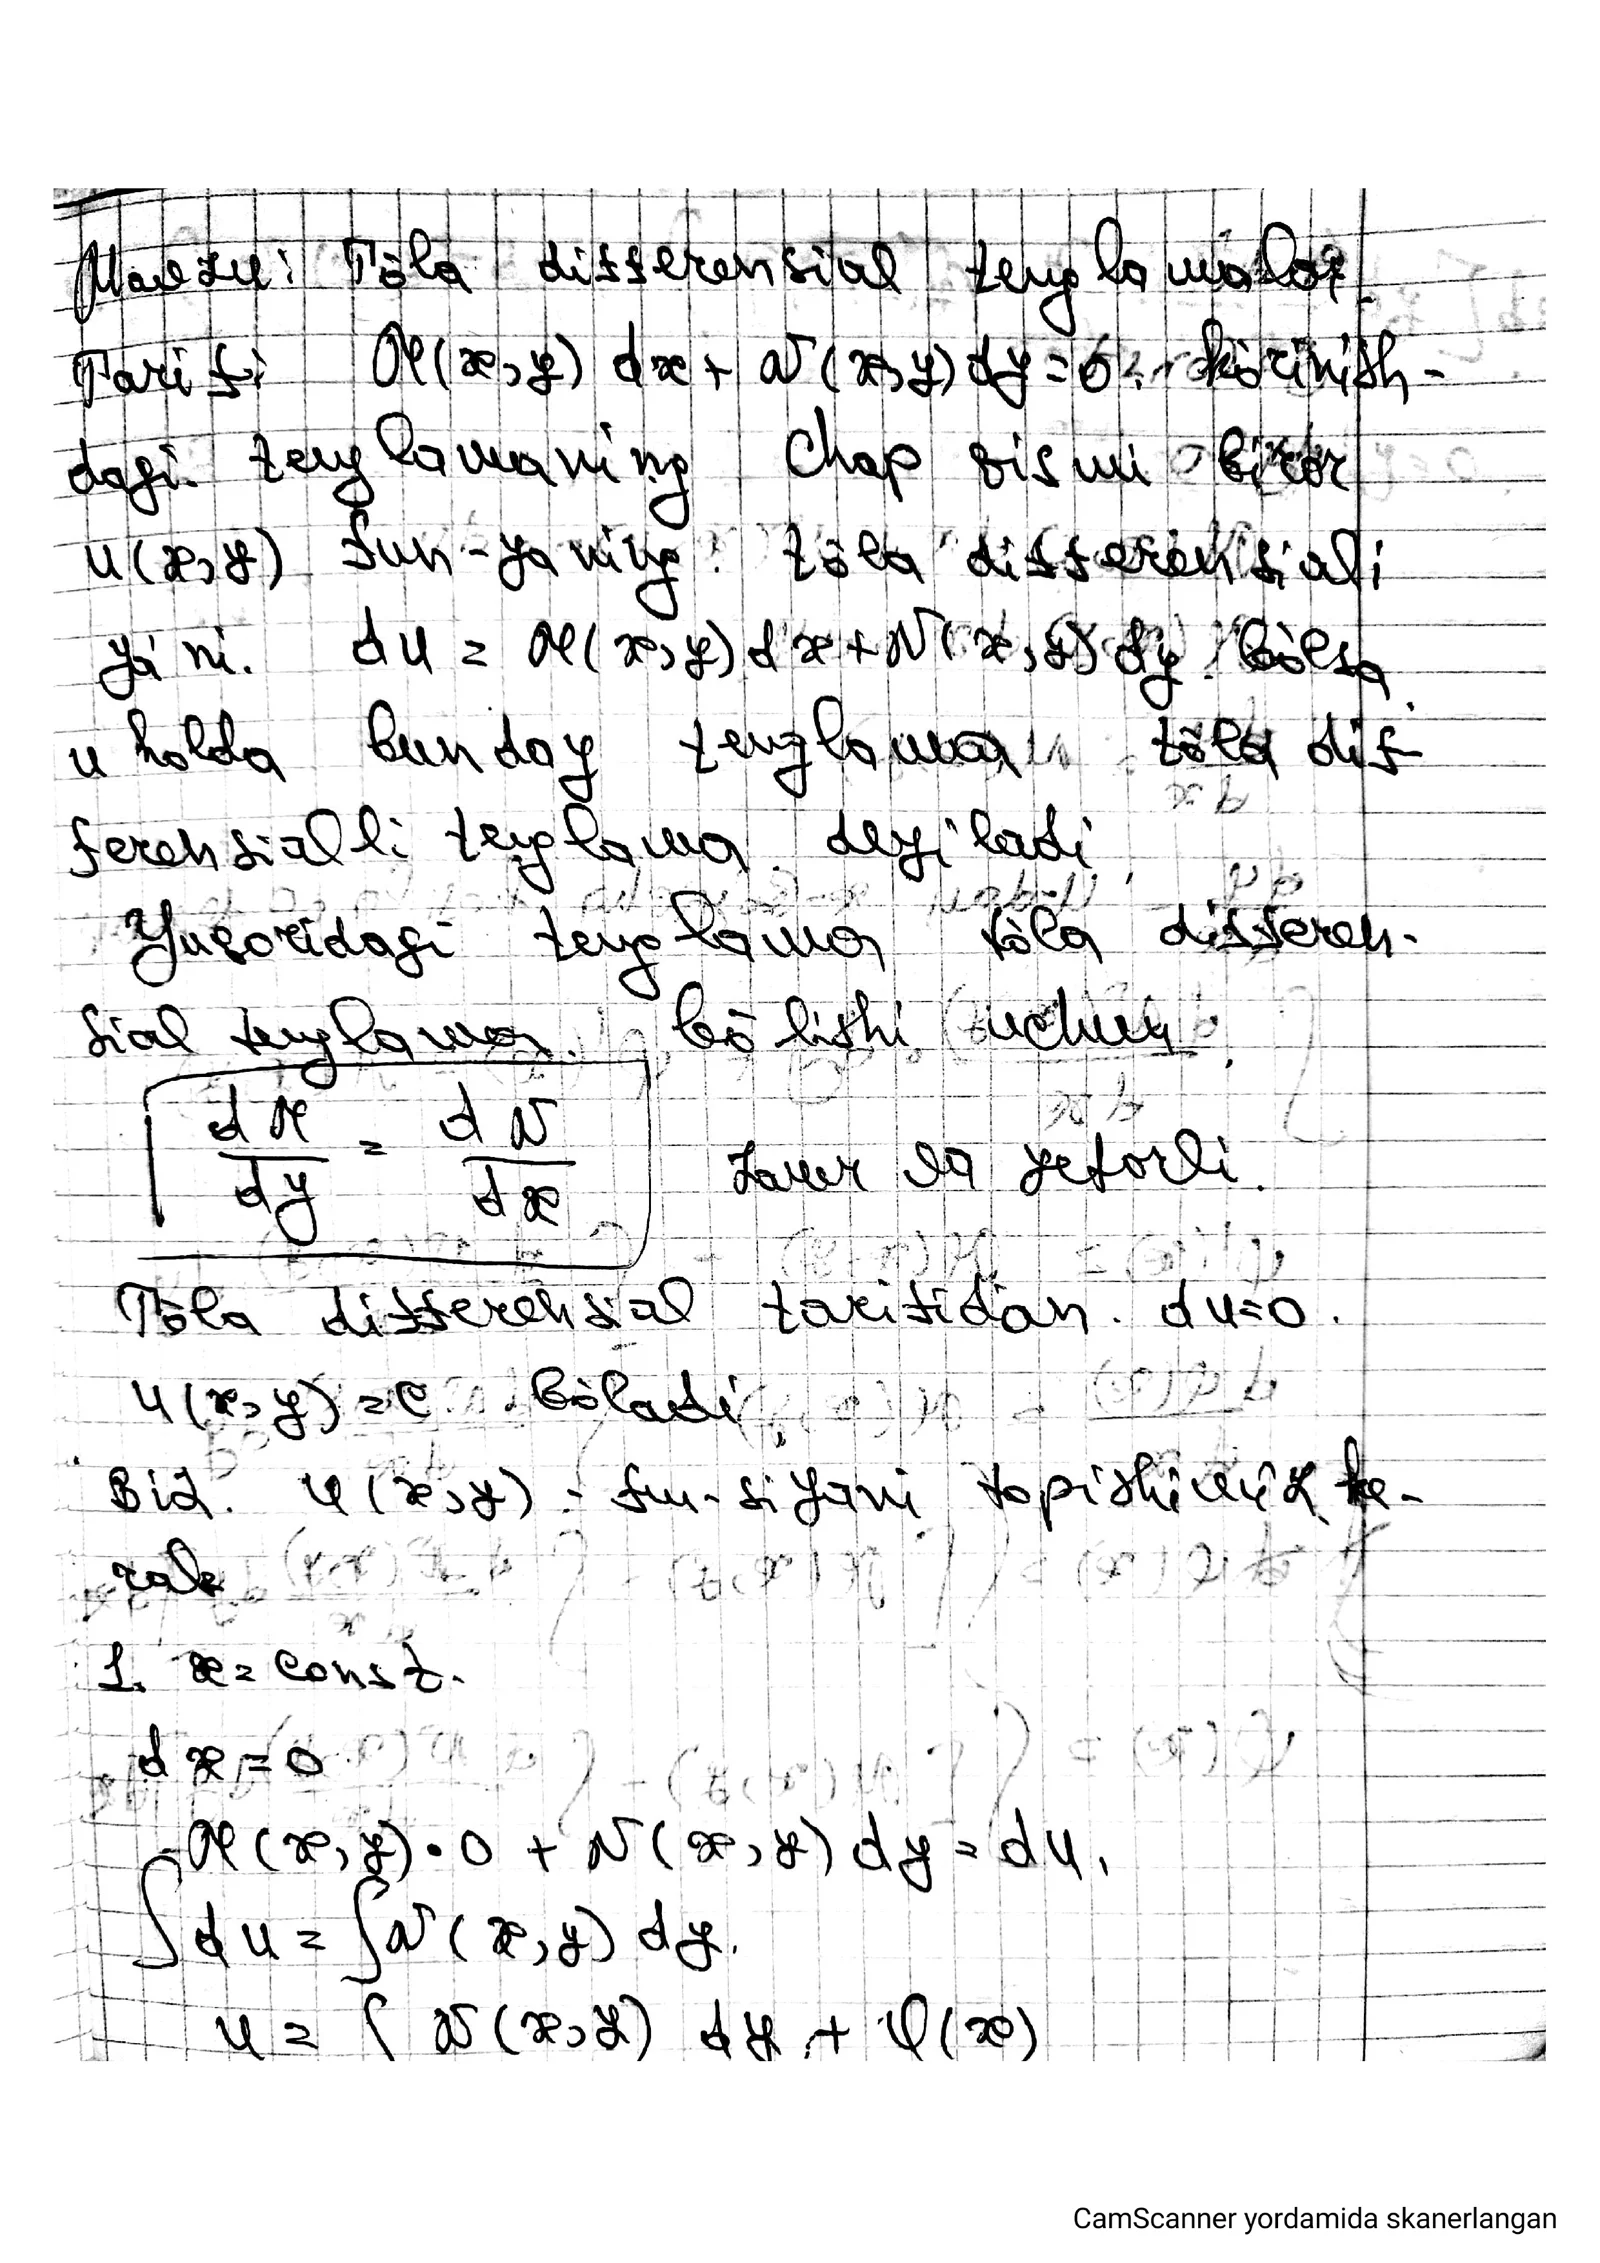 Mavzu: Tõla differensial tenglamalar.
Tarif: M(x,y) dx + N(x,y) dy = 0. kõrinish-
dagi tenglamaning Chap qismi biror
u(x,y) fun-yaning tõla differensiali
ya'ni. du = M(x,y) dx + N(x,y) dy bõlsa
u holda bunday tenglama tõla dif-
ferensialli tenglama deyiladi.
Yuqoridagi tenglama tõla differen-
sial tenglama bõlishi uchun
dM/dy = dN/dx zarur va yetarli.
Tõla differensial tarifidan. du=0.
u(x,y)=C bõladi
Biz. u(x,y) - fun-siyani topishimiz ke-
rak
1. x = const.
dx = 0
M(x,y)•0 + N(x,y) dy = du.
∫du = ∫N(x,y) dy.
u = ∫ N(x,y) dy + φ(x)
CamScanner yordamida skanerlangan